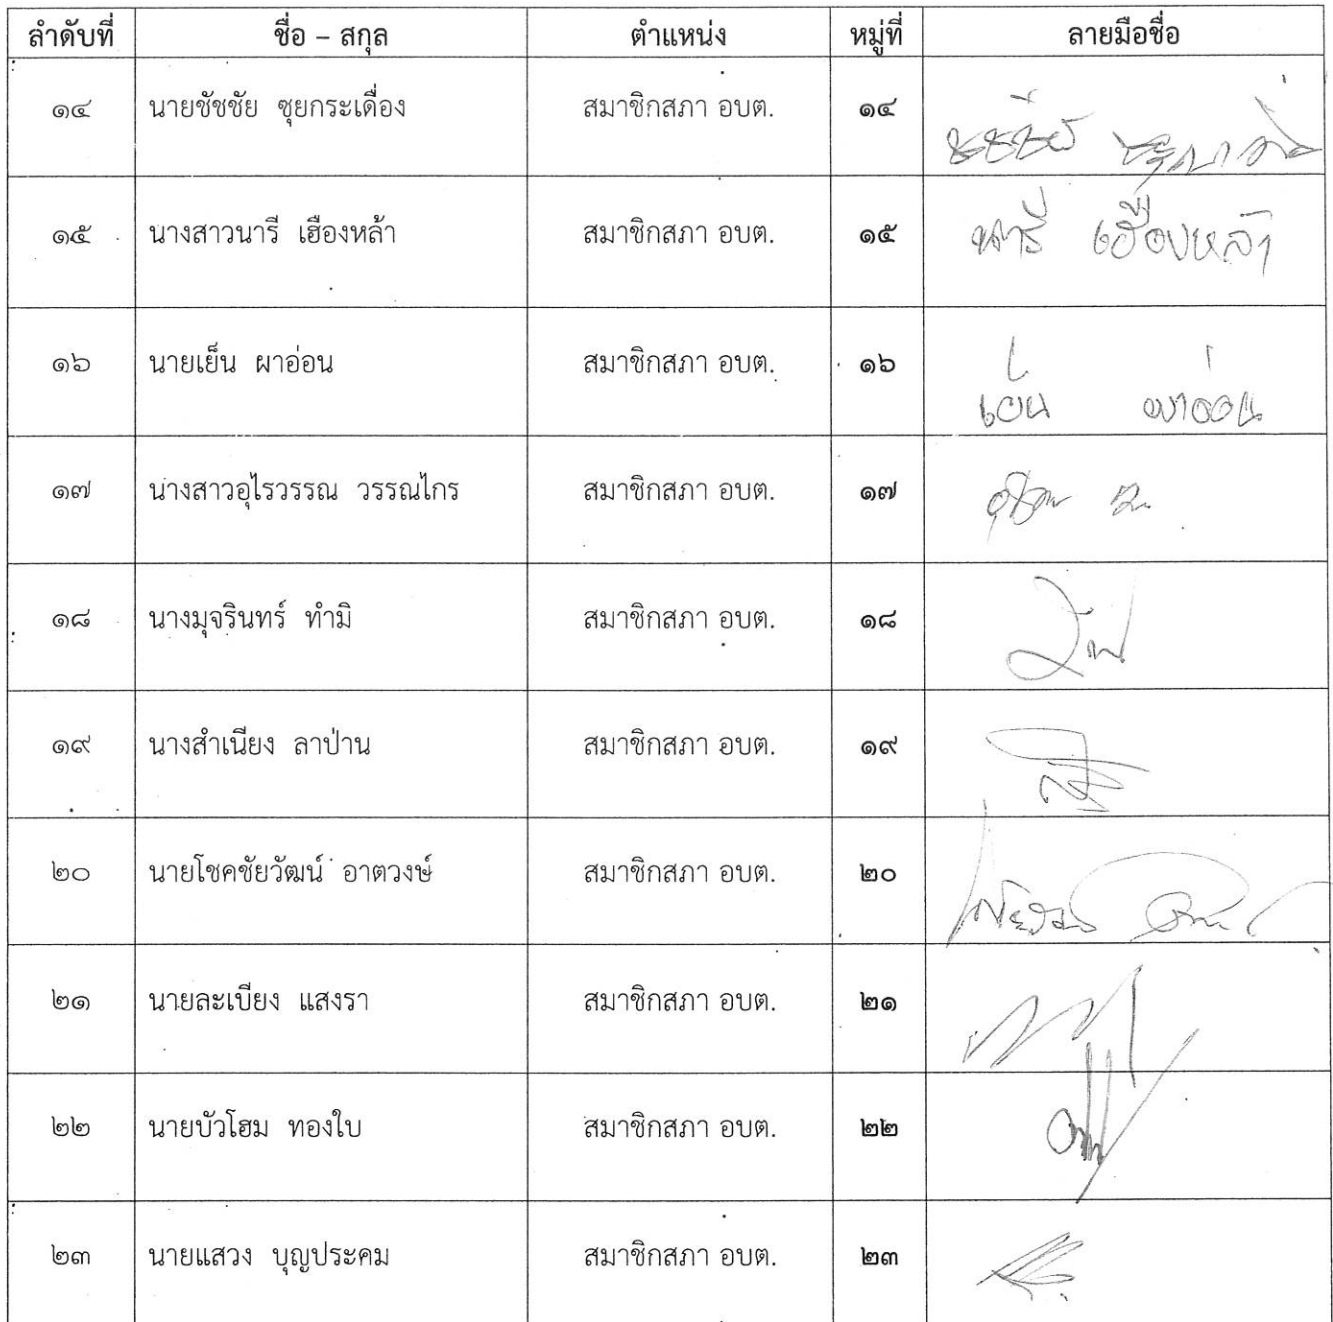 ลำดับที่ ชื่อ – สกุล ตำแหน่ง หมู่ที่ ลายมือชื่อ
๑๔ นายชัชชัย ซุยกระเดื่อง สมาชิกสภา อบต. ๑๔
๑๕ นางสาวนารี เฮืองหล้า สมาชิกสภา อบต. ๑๕ นารี เฮืองหล้า
๑๖ นายเย็น ผาอ่อน สมาชิกสภา อบต. ๑๖ เย็น ผาอ่อน
๑๗ นางสาวอุไรวรรณ วรรณไกร สมาชิกสภา อบต. ๑๗
๑๘ นางมุจรินทร์ ทำมิ สมาชิกสภา อบต. ๑๘
๑๙ นางสำเนียง ลาป่าน สมาชิกสภา อบต. ๑๙
๒๐ นายโชคชัยวัฒน์ อาตวงษ์ สมาชิกสภา อบต. ๒๐
๒๑ นายละเบียง แสงรา สมาชิกสภา อบต. ๒๑
๒๒ นายบัวโฮม ทองใบ สมาชิกสภา อบต. ๒๒
๒๓ นายแสวง บุญประคม สมาชิกสภา อบต. ๒๓